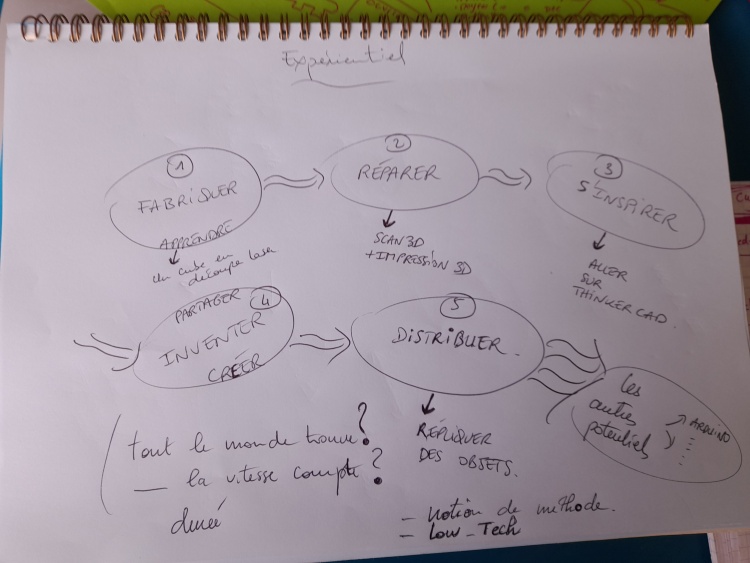 Expérientiel
1
FABRIQUER
APPRENDRE
Un cube en
découpe laser
2
RÉPARER
SCAN 3D
+ IMPRESSION 3D
3
S'INSPIRER
ALLER
SUR
THINKERCAD.
4
PARTAGER
INVENTER
CRÉER
5
DISTRIBUER.
RÉPLIQUER
DES OBJETS.
les
autres
potentiels
ARDUINO
tout le monde trouve?
— la vitesse compte?
durée
- notion de méthode.
- Low_Tech